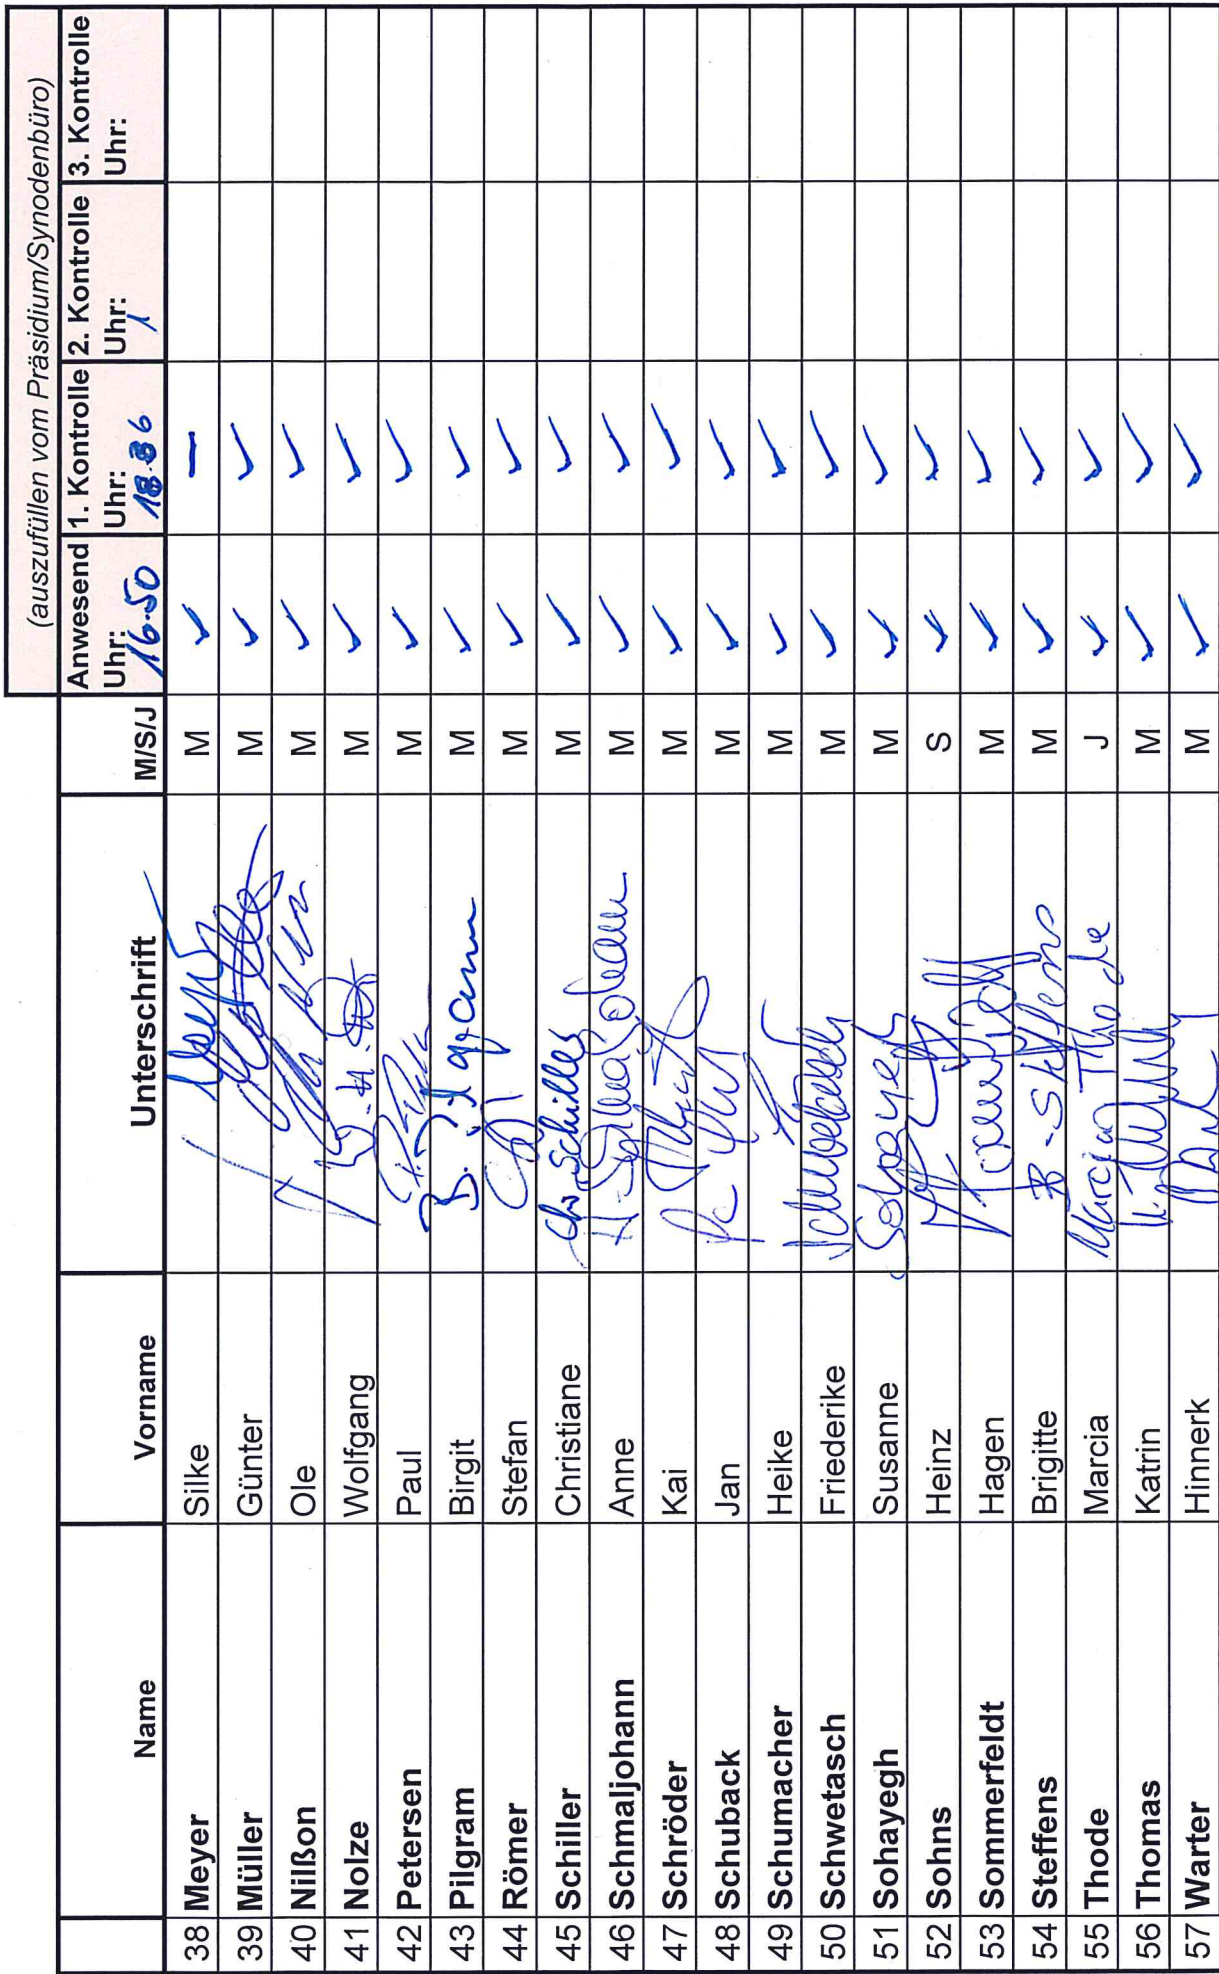 (auszufüllen vom Präsidium/Synodenbüro)
Name Vorname Unterschrift M/S/J Anwesend Uhr: 16.50 1. Kontrolle Uhr: 18.36 2. Kontrolle Uhr: 3. Kontrolle Uhr:
38 Meyer Silke M ✓ –
39 Müller Günter M ✓ ✓
40 Nilßon Ole M ✓ ✓
41 Nolze Wolfgang M ✓ ✓
42 Petersen Paul M ✓ ✓
43 Pilgram Birgit B. Pilgram M ✓ ✓
44 Römer Stefan M ✓ ✓
45 Schiller Christiane Chr. Schiller M ✓ ✓
46 Schmaljohann Anne A. Schmaljohann M ✓ ✓
47 Schröder Kai M ✓ ✓
48 Schuback Jan M ✓ ✓
49 Schumacher Heike M ✓ ✓
50 Schwetasch Friederike Schwetasch M ✓ ✓
51 Sohayegh Susanne Sohayegh M ✓ ✓
52 Sohns Heinz S ✓ ✓
53 Sommerfeldt Hagen M ✓ ✓
54 Steffens Brigitte B. Steffens M ✓ ✓
55 Thode Marcia Marcia Thode J ✓ ✓
56 Thomas Katrin M ✓ ✓
57 Warter Hinnerk M ✓ ✓